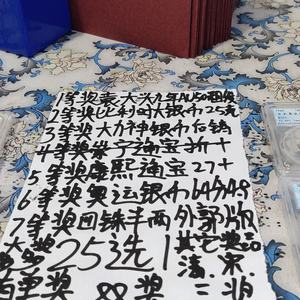 1等奖袁大头九年AU50国权
2等奖比利时大银币25克
3等奖大力神银币
4等奖崇宁通宝折十
5等奖康熙通宝27+
6等奖奥运银币64分48
7等奖四铢半两外郭版
大奖 25选1 其它奖品
清 宋
88奖 二奖